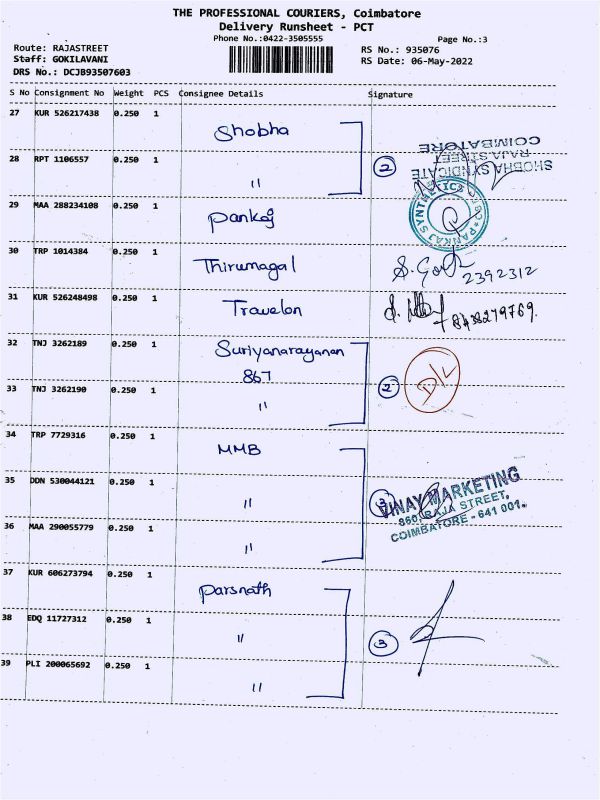 THE PROFESSIONAL COURIERS, Coimbatore
Delivery Runsheet - PCT
Phone No.:0422-3505555
Page No.:3
Route: RAJASTREET
RS No.: 935076
Staff: GOKILAVANI
RS Date: 06-May-2022
DRS No.: DCJB93507603
S No Consignment No Weight PCS Consignee Details Signature
27 KUR 526217438 0.250 1 Shobha
28 RPT 1106557 0.250 1 " 2
SHOBHA SYNDICATE
RAJA STREET
COIMBATORE
29 MAA 288234108 0.250 1 Pankaj
PANKAJ SYNTHETICS
30 TRP 1014384 0.250 1 Thirumagal
2392312
31 KUR 526248498 0.250 1 Travelon
8438279769.
32 TNJ 3262189 0.250 1 Suriyanarayanan
867
33 TNJ 3262190 0.250 1 " 2 D/L
34 TRP 7729316 0.250 1 MMB
35 DDN 530044121 0.250 1 " 3
VINAY MARKETING
860, RAJA STREET,
COIMBATORE - 641 001.
36 MAA 290055779 0.250 1 "
37 KUR 606273794 0.250 1 Parsnath
38 EDQ 11727312 0.250 1 " 3
39 PLI 200065692 0.250 1 "